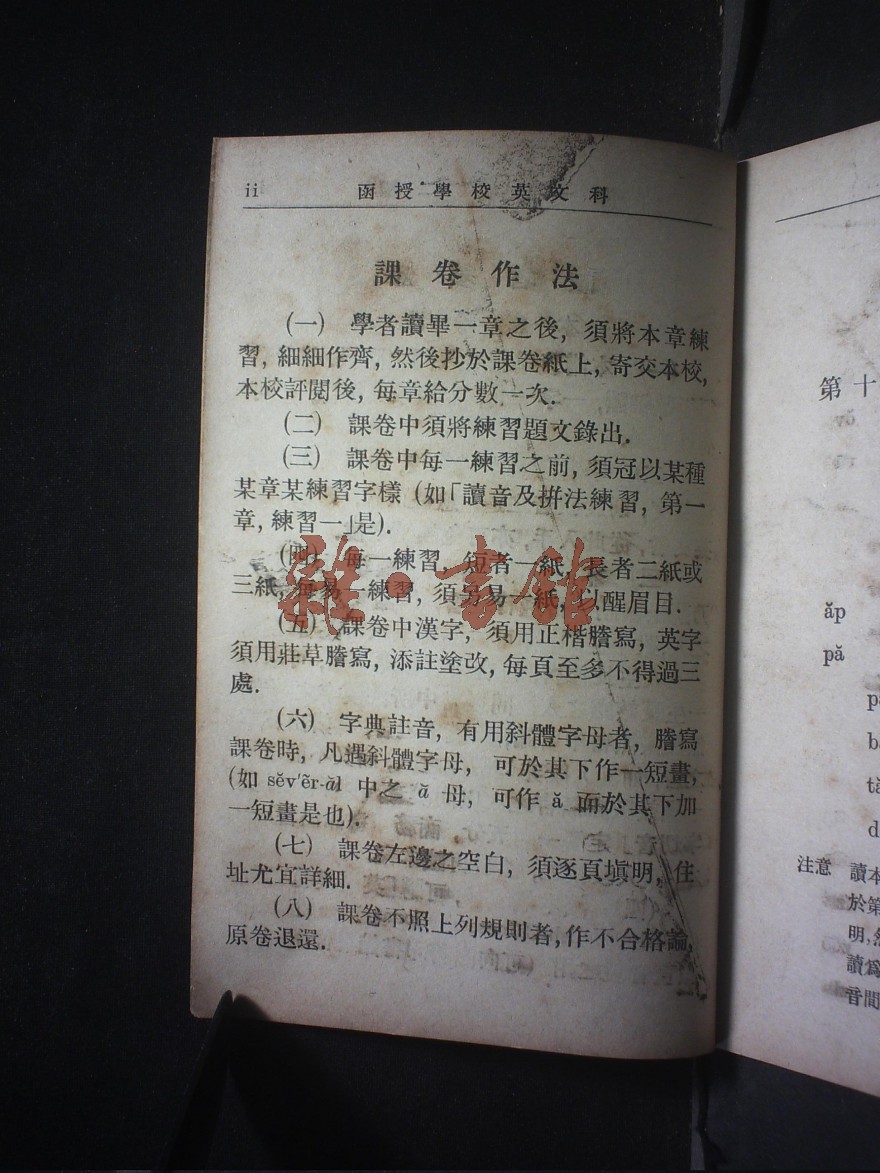 ii 函授學校英文科
課卷作法
(一) 學者讀畢一章之後, 須將本章練
習, 細細作齊, 然後抄於課卷紙上, 寄交本校,
本校評閱後, 每章給分數一次.
(二) 課卷中須將練習題文錄出.
(三) 課卷中每一練習之前, 須冠以某種
某章某練習字樣 (如「讀音及拼法練習, 第一
章, 練習一」是).
(四) 每一練習, 短者一紙, 長者二紙或
三紙, 每易一練習, 須另易一紙, 以醒眉目.
(五) 課卷中漢字, 須用正楷謄寫, 英字
須用莊草謄寫, 添註塗改, 每頁至多不得過三
處.
(六) 字典註音, 有用斜體字母者, 謄寫
課卷時, 凡遇斜體字母, 可於其下作一短畫,
(如 sĕv'ẽr-ăl 中之 ă 母, 可作 ă 而於其下加
一短畫是也).
(七) 課卷左邊之空白, 須逐頁塡明, 住
址尤宜詳細.
(八) 課卷不照上列規則者, 作不合格論,
原卷退還.
雜·書館
第十
ăp
pă
注意 讀本
於第
明, 然
讀爲
音間